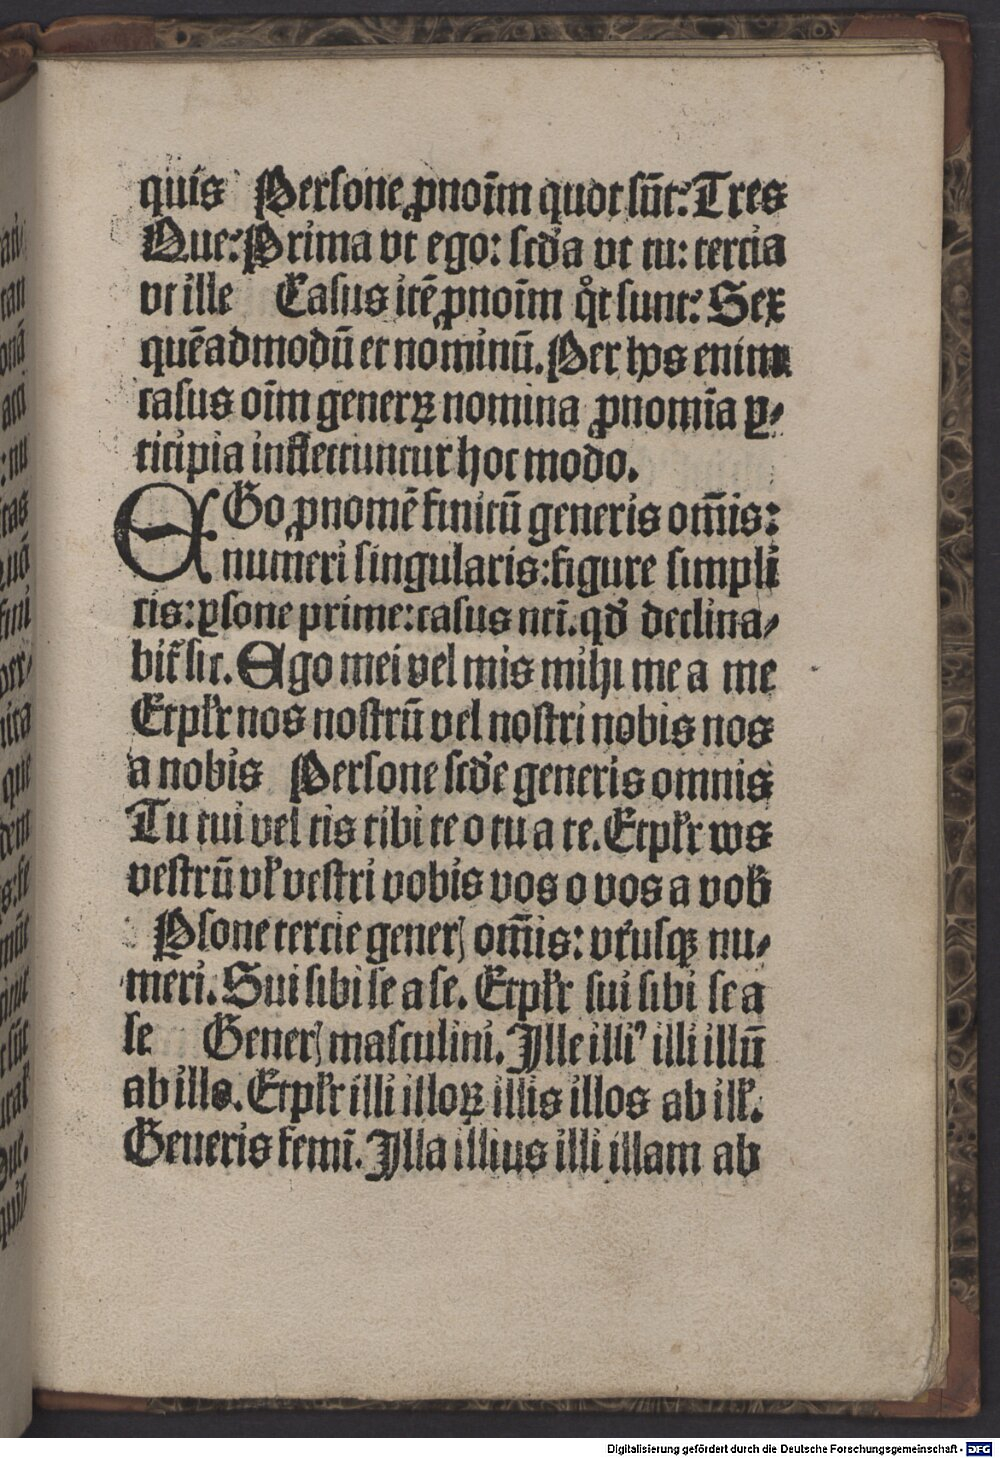 quis Persone ꝓnoīm quot sūt: Tres
Que: Prima vt ego: scd'a vt tu: tercia
vt ille Casus itē ꝓnoīm qͦt sunt: Sex
quēadmodū et nominū. Per hos enim
casus oīm generꝝ nomina ꝓnomīa ꝑ-
ticipia inflectuntur hoc modo.
EGo ꝓnomē finitū generis om̄is:
numeri singularis: figure simpli
cis: ꝑsone prime: casus ntī. qd' declina-
bit̃ sic. Ego mei vel mis mihi me a me
Et pl'r nos nostrū vel nostri nobis nos
a nobis Persone scd'e generis omnis
Tu tui vel tis tibi te o tu a te. Et pl'r vos
vestrū vl' vestri vobis vos o vos a vob
Psone tercie gener om̄is: vt'usqꝫ nu-
meri. Sui sibi se a se. Et pl'r sui sibi se a
se Gener masculini. Ille illi' illi illū
ab illo. Et pl'r illi illoꝝ illis illos ab ill'.
Generis femī. Illa illius illi illam ab
Digitalisierung gefördert durch die Deutsche Forschungsgemeinschaft - DFG